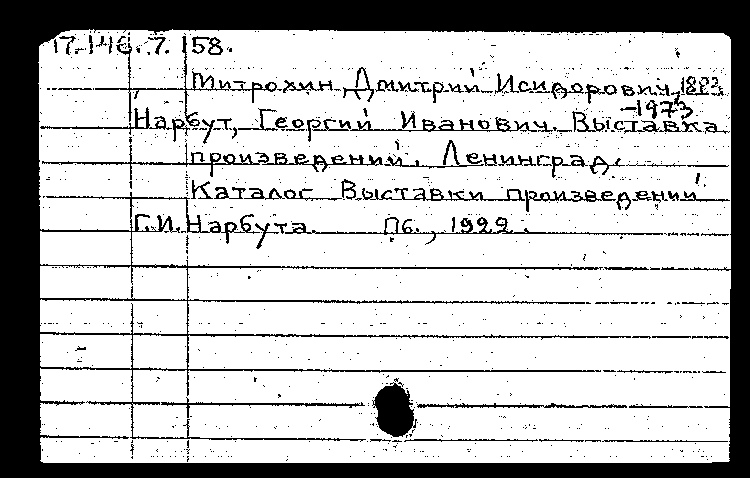 17-146.7.158.
Митрохин, Дмитрий Исидорович, 1883
-1973
Нарбут, Георгий Иванович. Выставка
произведений. Ленинград.
Каталог Выставки произведений
Г.И. Нарбута. Пб., 1922.